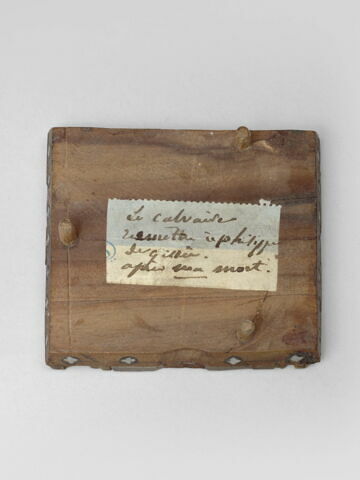 Le calvaire
remettre à philippe
de gillée.
après ma mort.